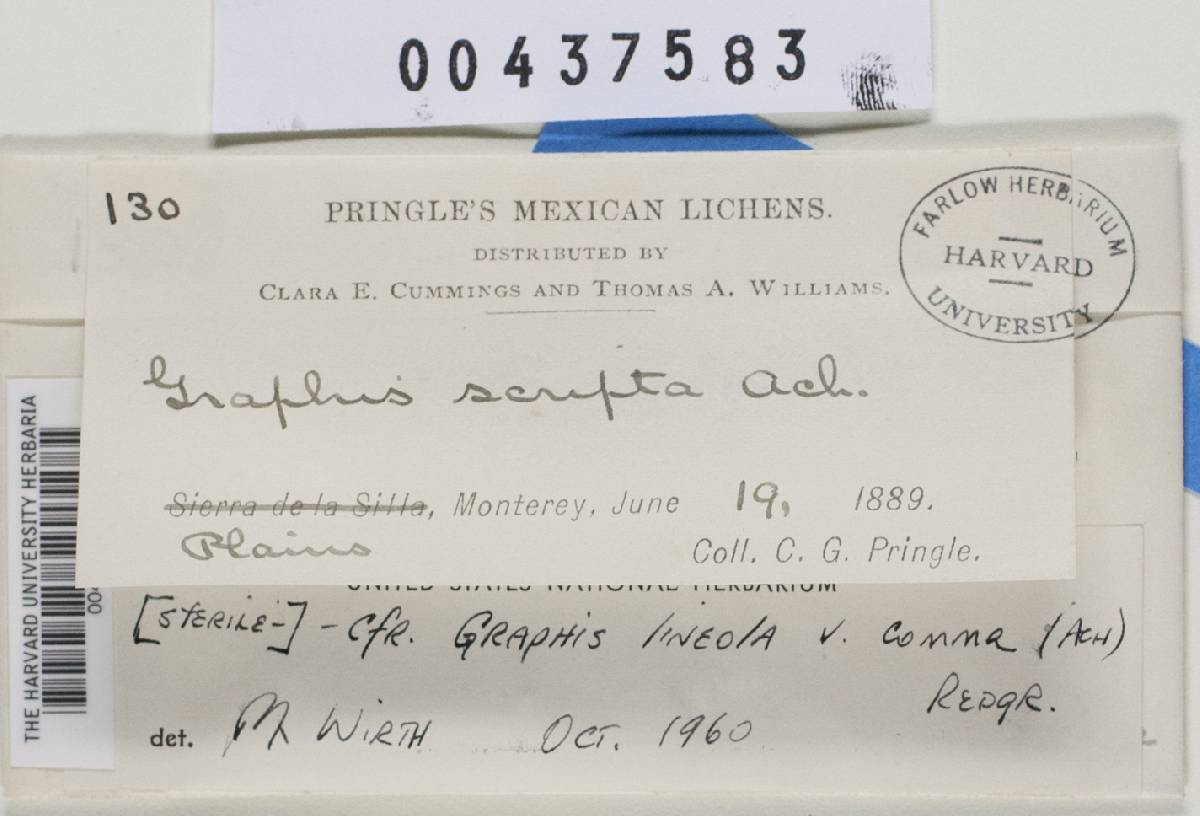 00437583
130
PRINGLE'S MEXICAN LICHENS.
DISTRIBUTED BY
CLARA E. CUMMINGS AND THOMAS A. WILLIAMS.
FARLOW HERBARIUM
HARVARD
UNIVERSITY
Graphis scripta Ach.
Sierra de la Silla, Monterey, June 19, 1889.
Plains
Coll. C. G. Pringle.
THE HARVARD UNIVERSITY HERBARIA
UNITED STATES NATIONAL HERBARIUM
[STERILE-] - Cfr. GRAPHIS lineola v. comma (ACH)
REDGR.
det. M WIRTH OCT. 1960